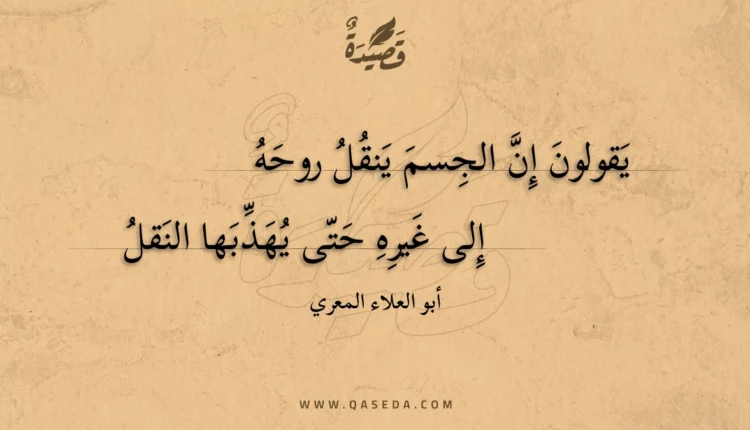 قَصِيدَةٌ
يَقولونَ إِنَّ الجِسمَ يَنقُلُ روحَهُ
إِلى غَيرِهِ حَتّى يُهَذِّبَها النَقلُ
أبو العلاء المعري
WWW.QASEDA.COM